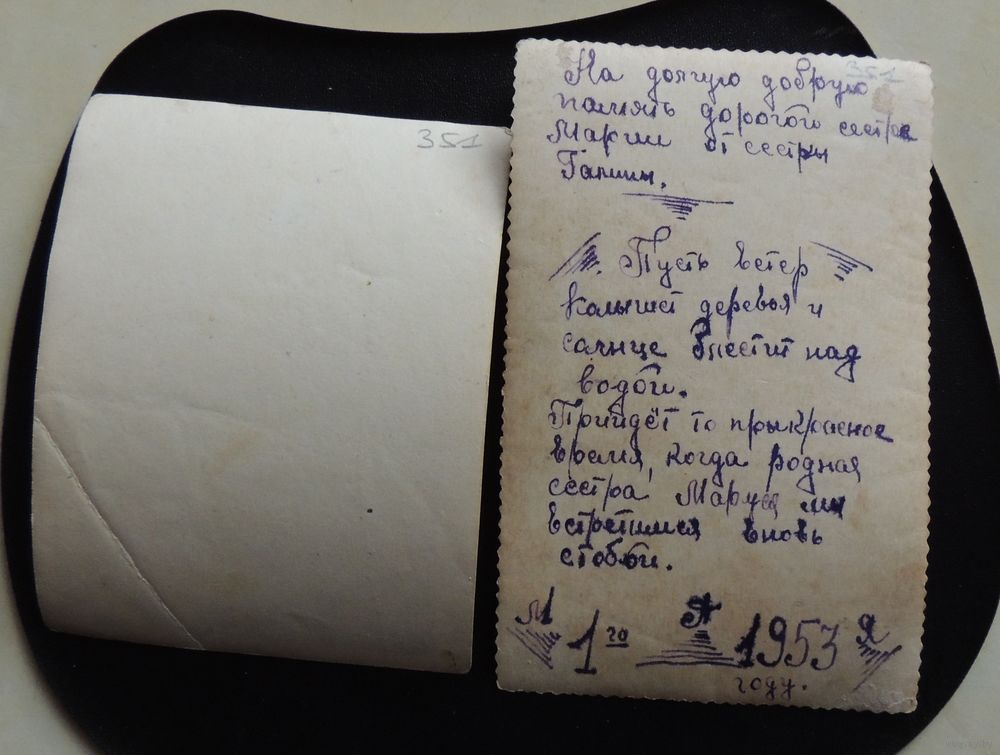 351
351
На долгую добрую
память дорогой сестре
Марии от сестры
Ганны.
Пусть ветер
колышет деревья и
солнце блестит над
водой.
Прийдёт то прыкрасное
время, когда родная
сестра Маруся мы
встретимся вновь
стобой.
М А Я
1го 1953
году.